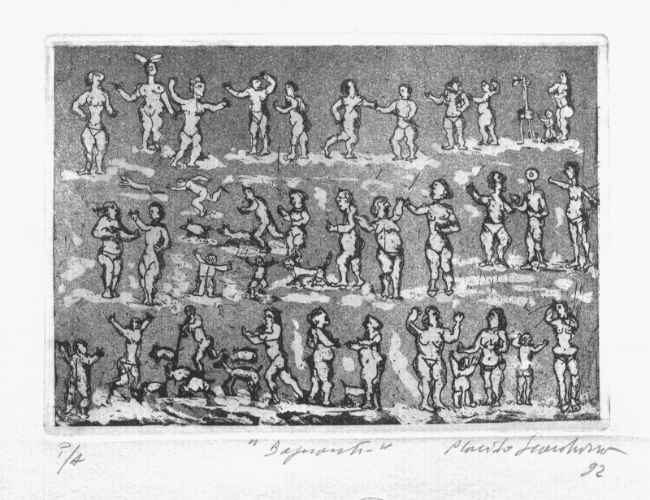 P/A "Bagnanti" Placido Scandurra
92